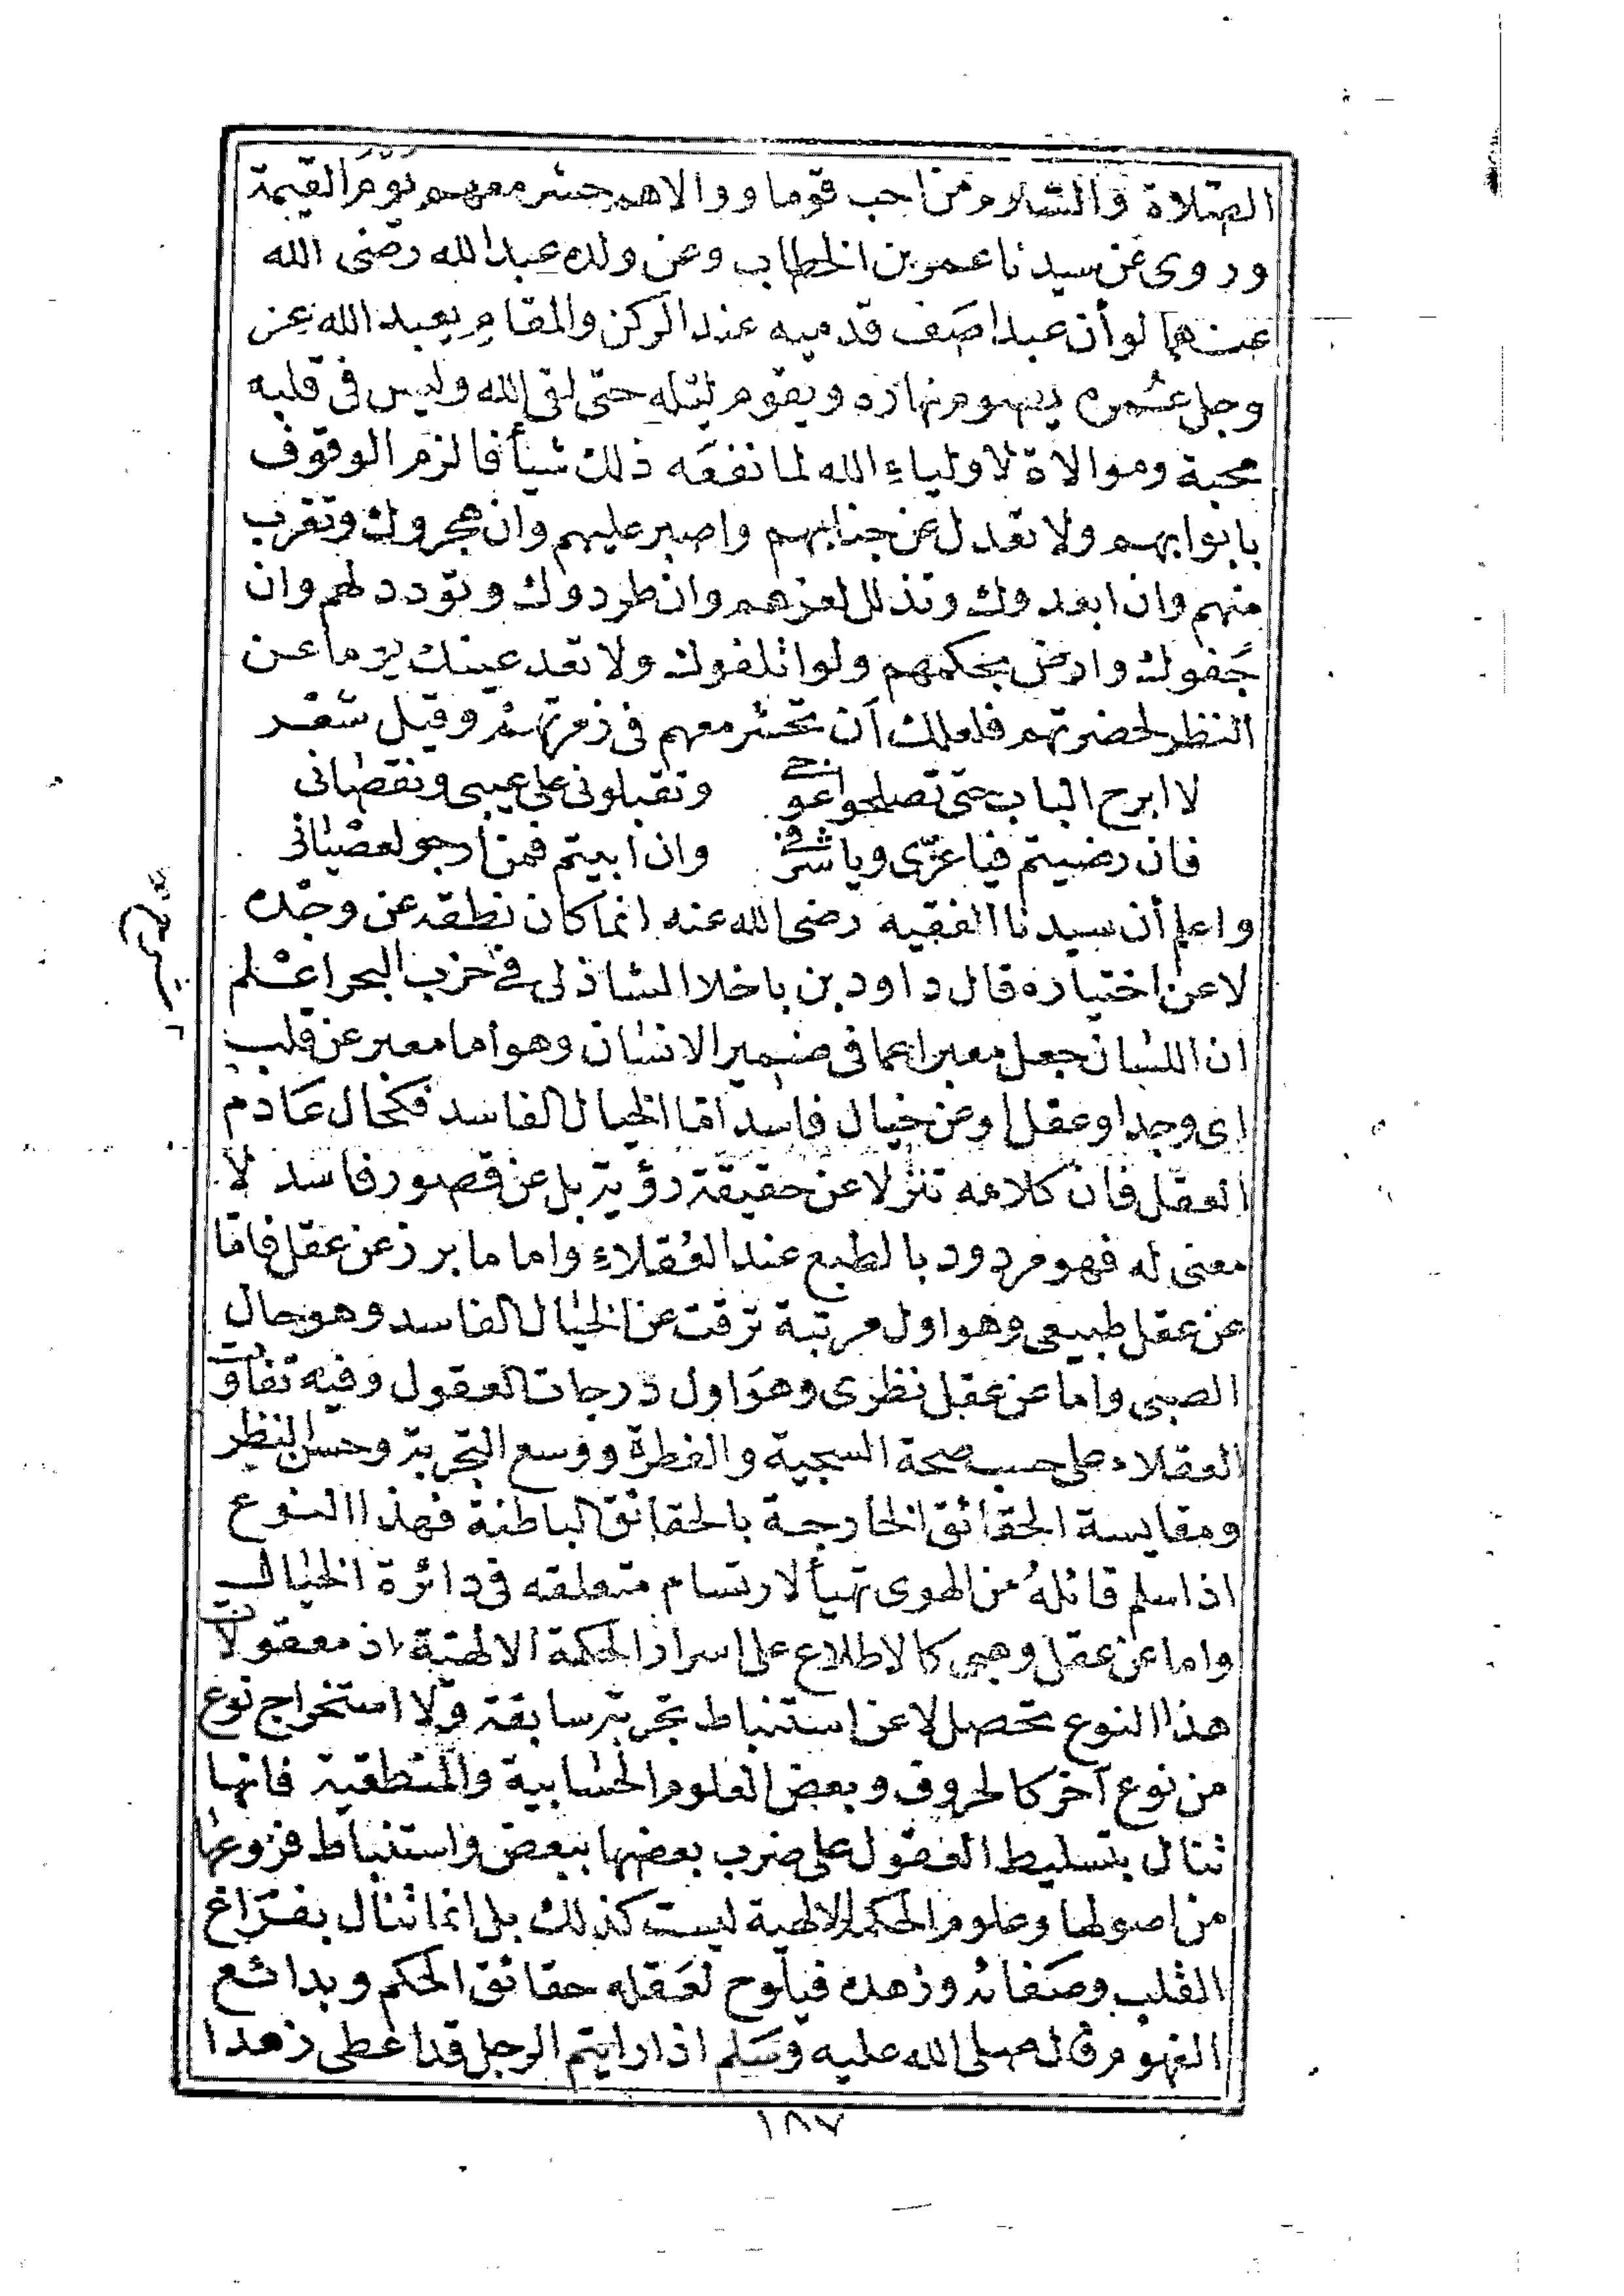 الصلاة والسلام من احب قوما ووالاهم حشر معهم يوم القيمة
وروى عن سيدنا عمر بن الخطاب وعن ولده عبد الله رضى الله
عنهما لو أن عبدا صف قدميه عند الركن والمقام يعبد الله عز
وجل عمره يصوم نهاره ويقوم ليله حتى لقى الله وليس فى قلبه
محبة وموالاة لاولياء الله لما نفعه ذلك شيأ فالزم الوقوف
بابوابهم ولا تعدل عن جنابهم واصبر عليهم وان هجروك وتقرب
منهم وان ابعدوك وتذلل لعزهم وان طردوك وتودد لهم وان
جفوك وارض بحكمهم ولو اتلفوك ولا تعد عينك يوما عن
النظر لحضرتهم فلعلك أن تحشر معهم فى زمرتهم وقيل شعر
لا ابرح الباب حتى تصلحوا عوجى وتقبلونى على عيبى ونقصانى
فان رضيتم فيا عزى ويا شرفى وان ابيتم فمن أرجو لعصيانى
واعلم أن سيدنا الفقيه رضى الله عنه انما كان نطقه عن وجده
لا عن اختياره قال داود بن باخلا الشاذلى فى حزب البحر اعلم
ان اللسان جعل معبرا عما فى ضمير الانسان وهو اما معبر عن قلب
اى وجد او عقل او عن خيال فاسد اما الخيال الفاسد فكحال عادم
العقل فان كلامه تنزل لا عن حقيقة رؤية بل عن قصور فاسد لا
معنى له فهو مردود بالطبع عند العقلاء واما ما برز عن عقل فاما
عن عقل طبيعى وهو اول مرتبة ترقت عن الخيال الفاسد وهو حال
الصبى واما عن عقل نظرى وهو اول درجات العقول وفيه تفاوت
العقلاء على حسب صحة السجية والفطرة ووسع التجربة وحسن النظر
ومقايسة الحقائق الخارجة بالحقائق الباطنة فهذا النوع
اذا سلم قائله من الهوى تهيأ لارتسام متعلقه فى دائرة الخيال
واما عن عقل وهبى كالاطلاع على اسرار الحكمة الالهية اذ معقولات
هذا النوع تحصل لا عن استنباط تجربة سابقة ولا استخراج نوع
من نوع آخر كالحروف وبعض العلوم الحسابية والمنطقية فانها
تنال بتسليط العقول على ضرب بعضها ببعض واستنباط فروعها
من اصولها وعلوم الحكم الالهية ليست كذلك بل انما تنال بفراغ
القلب وصفائه وزهده فيلوح لعقله حقائق الحكم وبدائع
الفهوم قال صلى الله عليه وسلم اذا رايتم الرجل قد اعطى زهدا
١٨٧